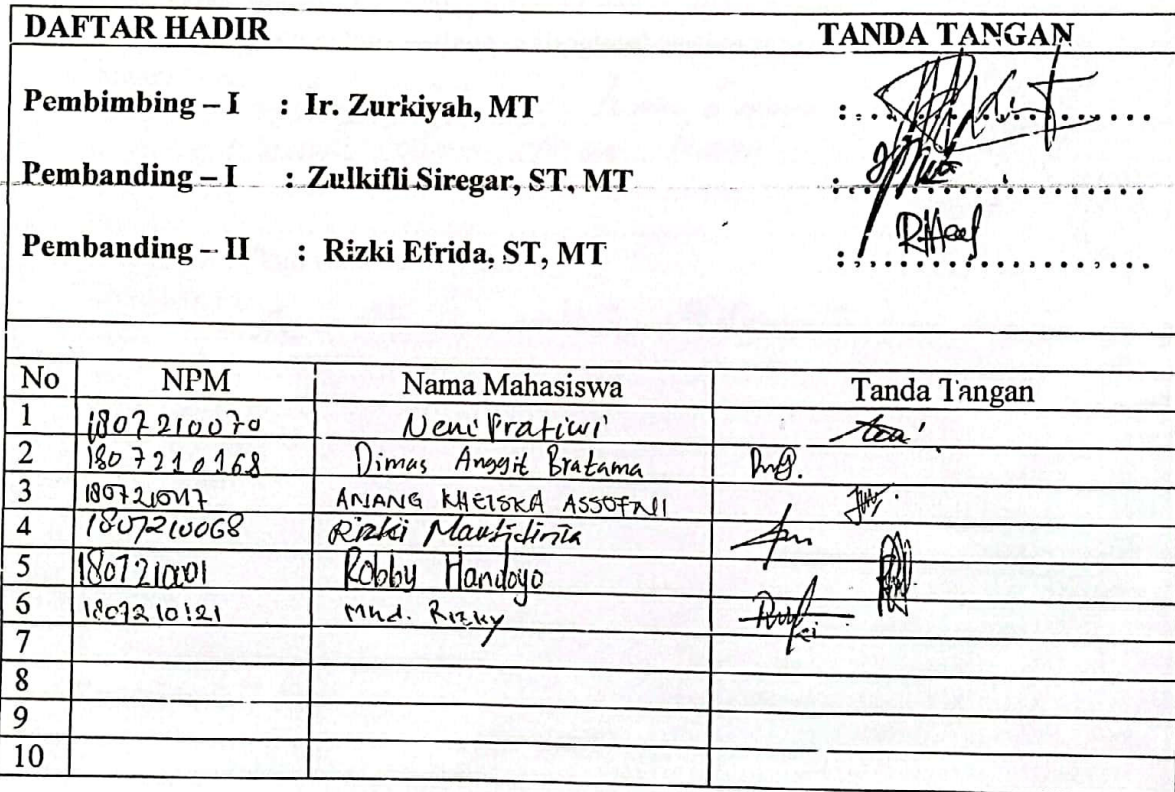 DAFTAR HADIR TANDA TANGAN
Pembimbing – I : Ir. Zurkiyah, MT : ..............................
Pembanding – I : Zulkifli Siregar, ST, MT : ..............................
Pembanding – II : Rizki Efrida, ST, MT : ..............................
No NPM Nama Mahasiswa Tanda Tangan
1 1807210070 Neni Pratiwi
2 1807210168 Dimas Anggit Bratama
3 ANANG
4 1807210068 Rizki
5 Robby Handoyo
6 1807210121 Mhd. Rizky
7
8
9
10